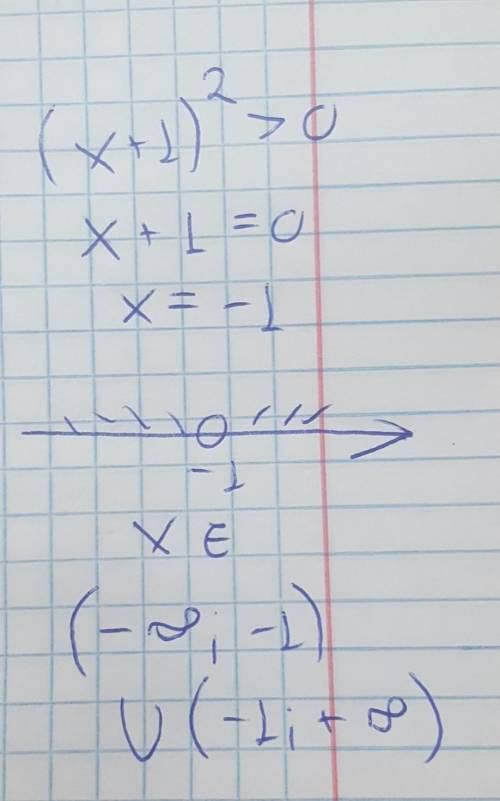 (x+1)² > 0
x + 1 = 0
x = -1
-1
x ∈
(-∞; -1)
∪ (-1; +∞)